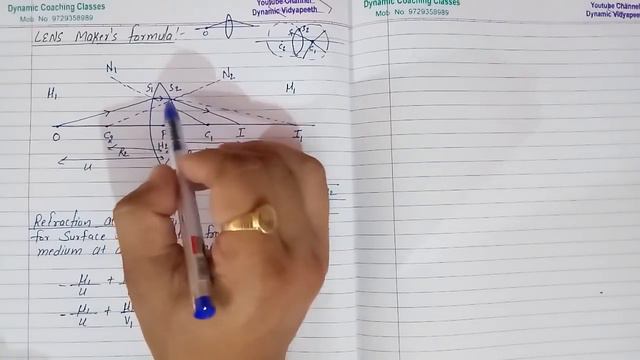 Dynamic Coaching Classes
Mob No 9729358989
Youtube Channel
Dynamic Vidyapeeth
Dynamic Coaching Classes
Mob. No: 9729358989
Youtube Channel
Dynamic Vidyapeeth
LENS Maker's formula:-
O
S1 S2
C2 C1
N1 N2
S1 S2
μ1 μ1
O C2 P C1 I I1
μ2
R2
u
Refraction
for Surface
medium at
- μ1/u +
- μ1/u + μ/V1